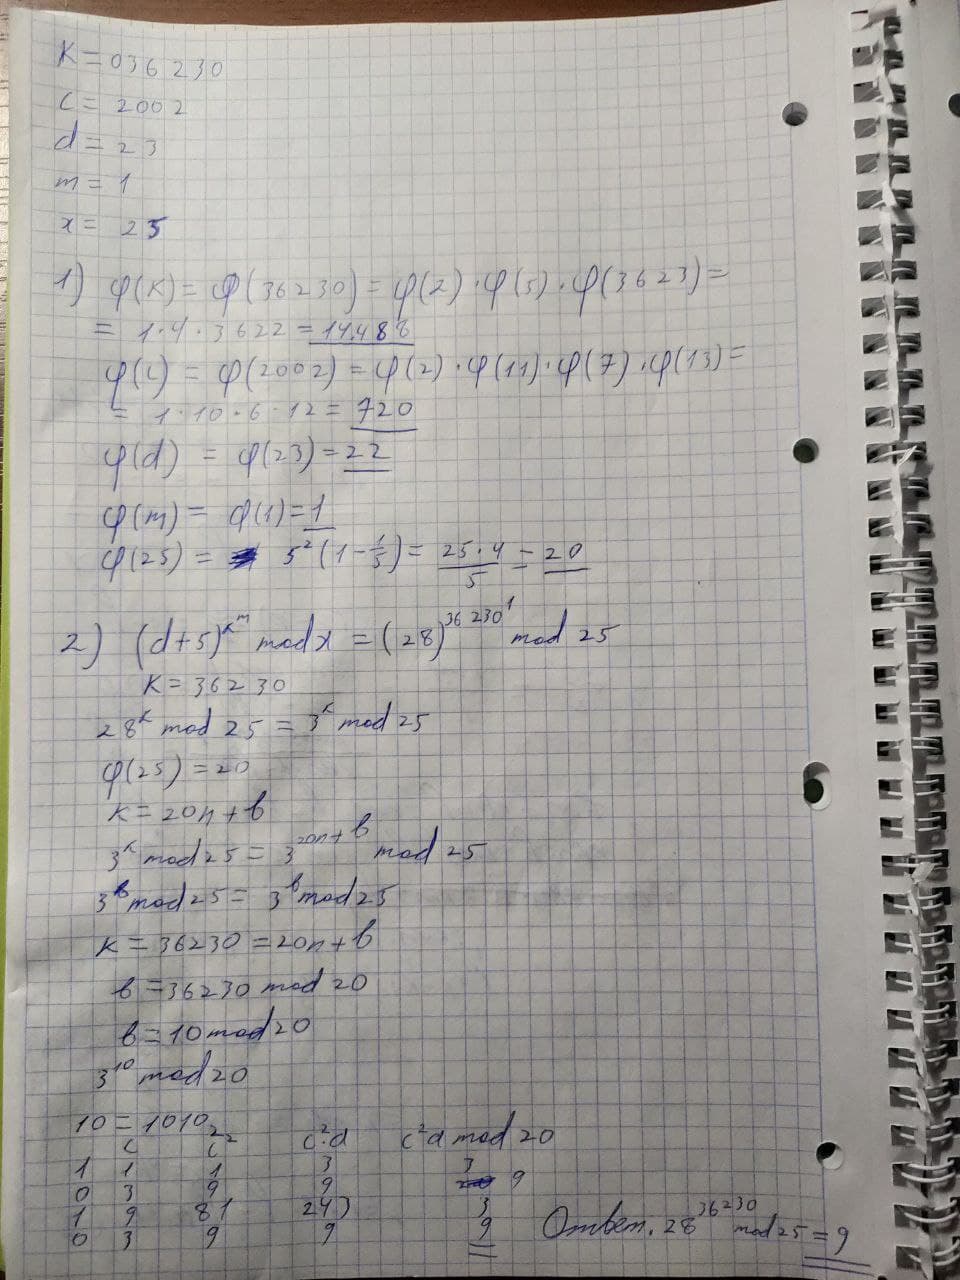 K = 036230
c = 2002
d = 23
m = 1
x = 25
1) φ(K) = φ(36230) = φ(2)·φ(5)·φ(3623) =
= 1·4·3622 = 14488
φ(c) = φ(2002) = φ(2)·φ(11)·φ(7)·φ(13) =
= 1·10·6·12 = 720
φ(d) = φ(23) = 22
φ(m) = φ(1) = 1
φ(25) = 5²(1 - 1/5) = 25·4/5 = 20
2) (d+5)^K^m mod x = (28)^36230^1 mod 25
K = 36230
28^K mod 25 = 3^K mod 25
φ(25) = 20
K = 20n + b
3^K mod 25 = 3^20n+b mod 25
3^b mod 25 = 3^b mod 25
K = 36230 = 20n + b
b = 36230 mod 20
b = 10 mod 20
3^10 mod 20
10 = 1010₂
c c² c²·d c²d mod 20
1 1 1 3 3
0 3 9 9 9
1 9 81 243 3
0 3 9 9 9
Ответ. 28^36230 mod 25 = 9